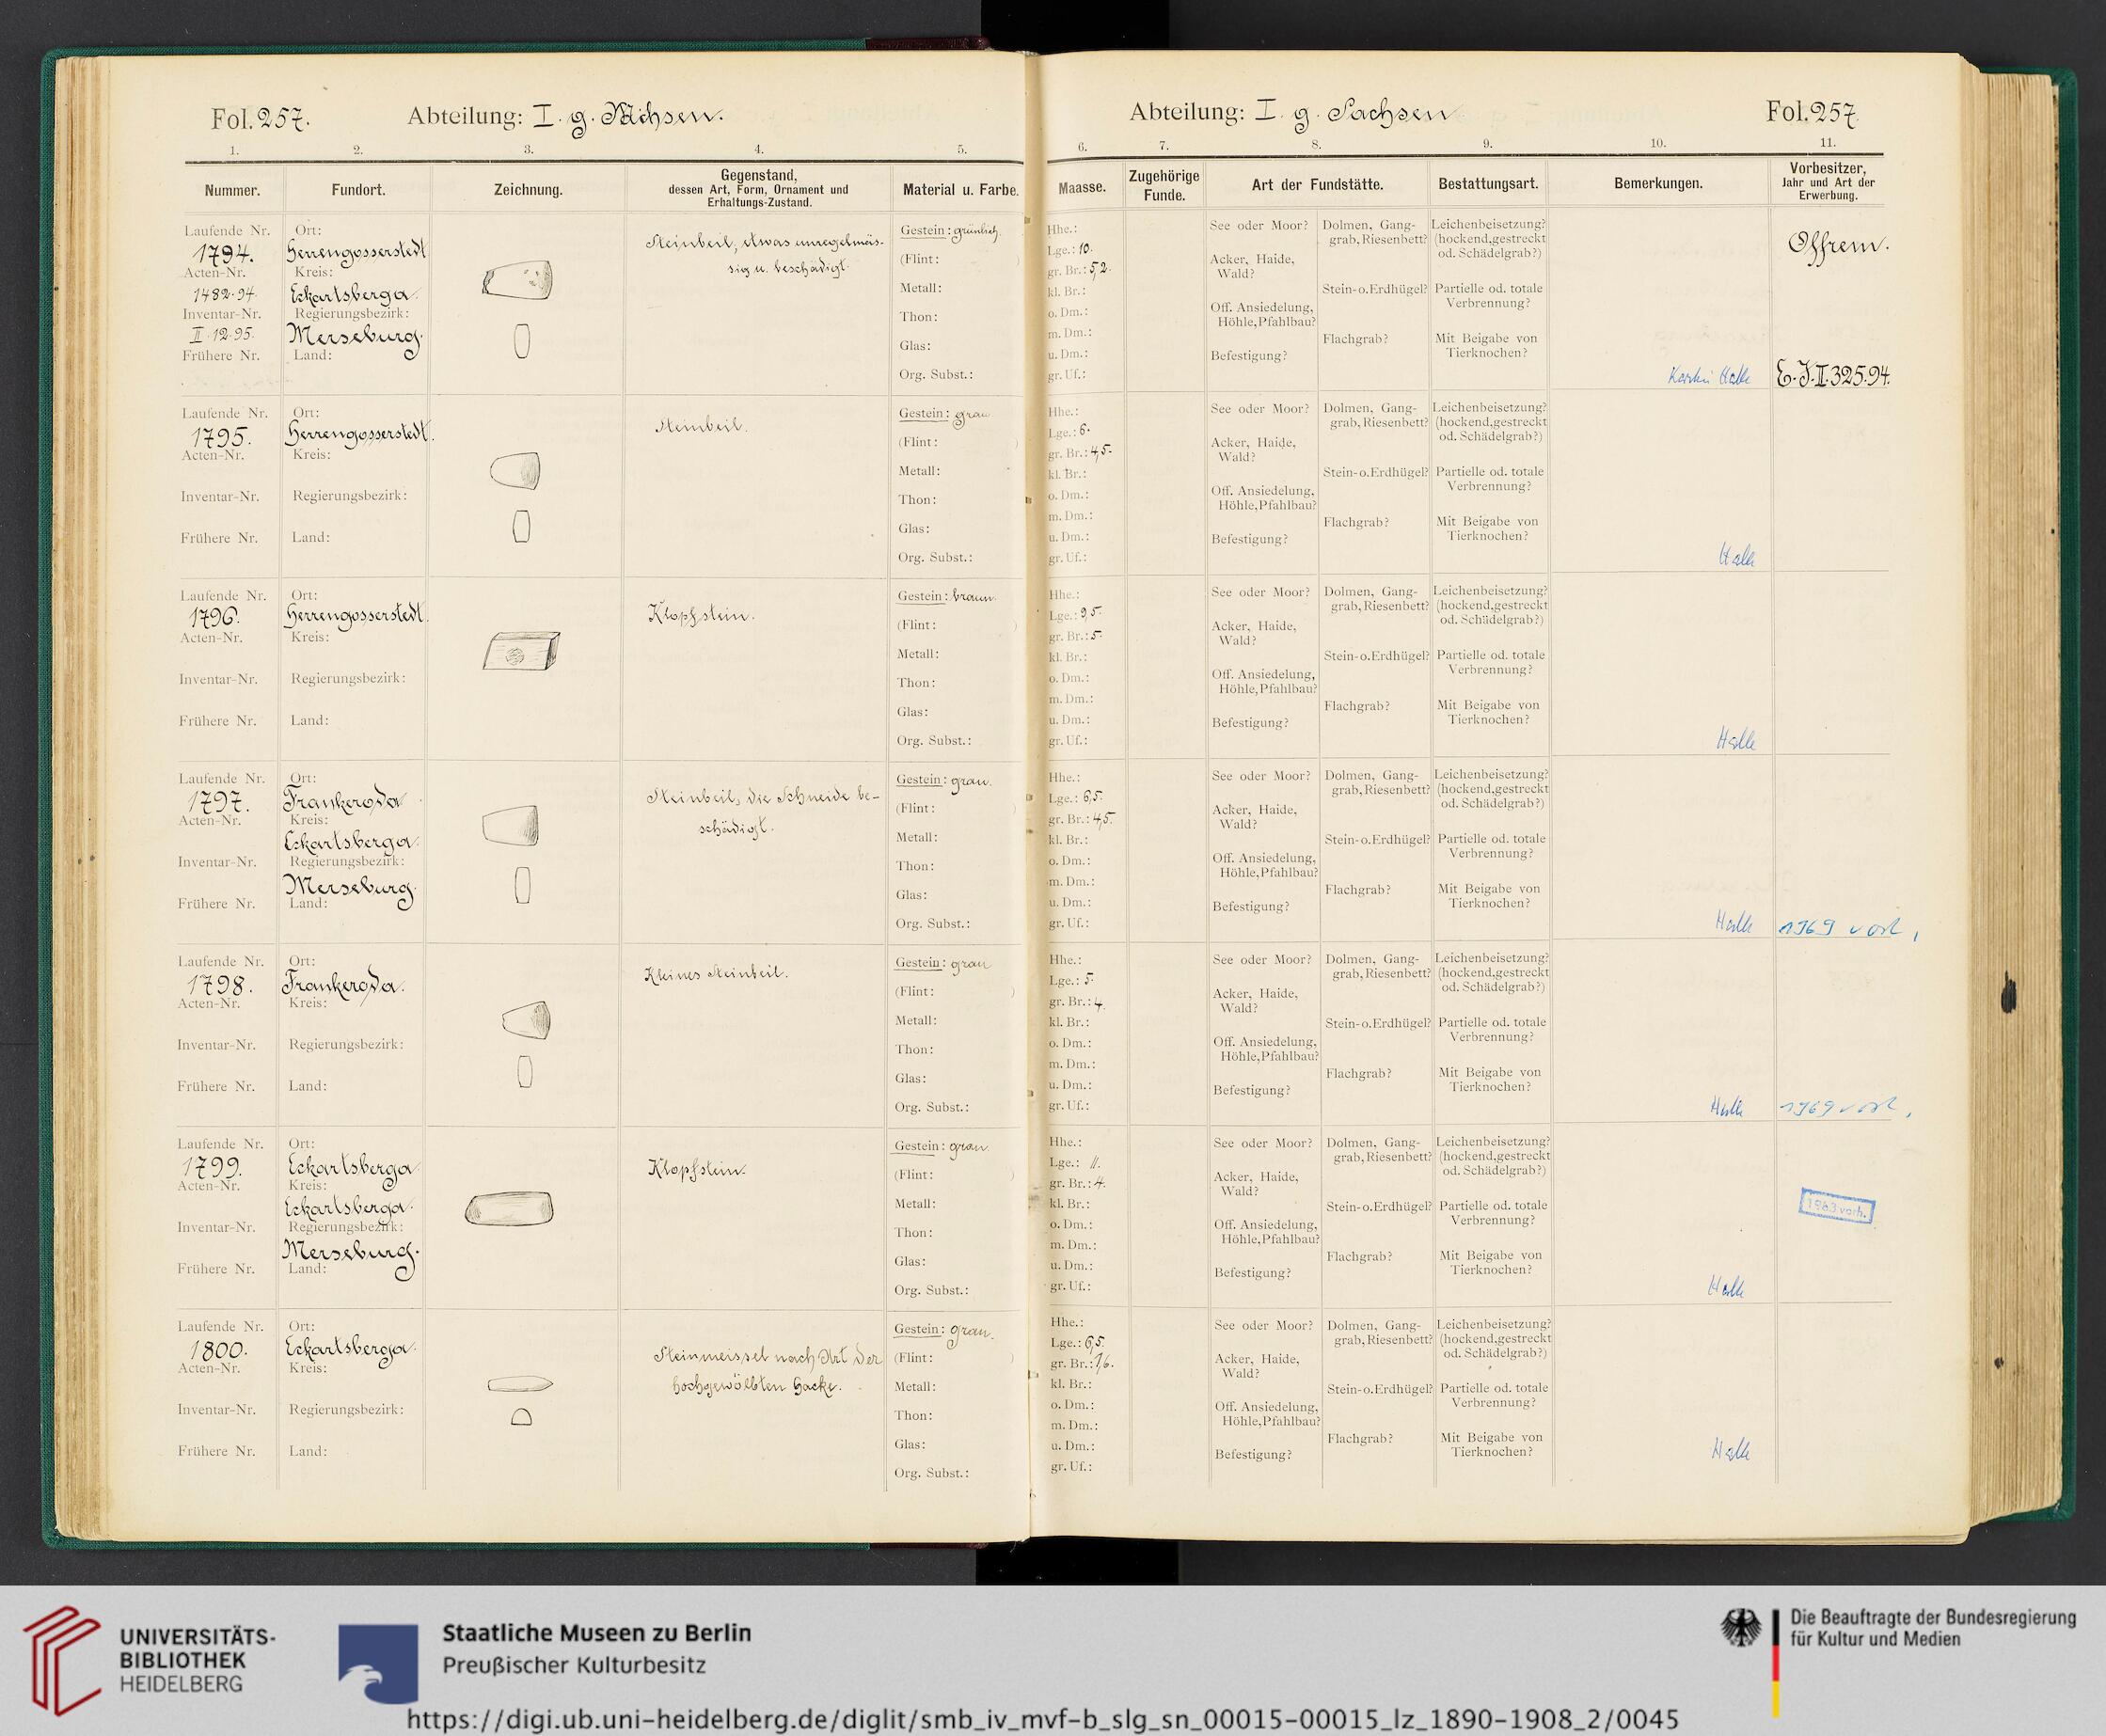 Fol. 257.
Abteilung: I. g. Sachsen.
Abteilung: I. g. Sachsen
Fol. 257.
1. 2. 3. 4. 5. 6. 7. 8. 9. 10. 11.
Nummer.
Fundort.
Zeichnung.
Gegenstand,
dessen Art, Form, Ornament und
Erhaltungs-Zustand.
Material u. Farbe.
Maasse.
Zugehörige
Funde.
Art der Fundstätte.
Bestattungsart.
Bemerkungen.
Vorbesitzer,
Jahr und Art der
Erwerbung.
Laufende Nr.
1794.
Acten-Nr.
1482.94.
Inventar-Nr.
II.12.95.
Frühere Nr.
Ort:
Herrengosserstedt
Kreis:
Eckartsberga.
Regierungsbezirk:
Merseburg.
Land:
Steinbeil, etwas unregelmäs-
sig u. beschädigt.
Gestein: grünlich.
(Flint: )
Metall:
Thon:
Glas:
Org. Subst.:
Hhe.:
Lge.: 10.
gr. Br.: 5,2.
kl. Br.:
o. Dm.:
m. Dm.:
u. Dm.:
gr. Uf.:
See oder Moor?
Acker, Haide,
Wald?
Off. Ansiedelung,
Höhle, Pfahlbau?
Befestigung?
Dolmen, Gang-
grab, Riesenbett?
Stein- o. Erdhügel?
Flachgrab?
Leichenbeisetzung?
(hockend, gestreckt
od. Schädelgrab?)
Partielle od. totale
Verbrennung?
Mit Beigabe von
Tierknochen?
Halle
E.J.II.325.94.
Laufende Nr.
1795.
Acten-Nr.
Inventar-Nr.
Frühere Nr.
Ort:
Herrengosserstedt.
Kreis:
Regierungsbezirk:
Land:
Steinbeil.
Gestein: grau
(Flint: )
Metall:
Thon:
Glas:
Org. Subst.:
Hhe.:
Lge.: 6.
gr. Br.: 4,5.
kl. Br.:
o. Dm.:
m. Dm.:
u. Dm.:
gr. Uf.:
See oder Moor?
Acker, Haide,
Wald?
Off. Ansiedelung,
Höhle, Pfahlbau?
Befestigung?
Dolmen, Gang-
grab, Riesenbett?
Stein- o. Erdhügel?
Flachgrab?
Leichenbeisetzung?
(hockend, gestreckt
od. Schädelgrab?)
Partielle od. totale
Verbrennung?
Mit Beigabe von
Tierknochen?
Halle
Laufende Nr.
1796.
Acten-Nr.
Inventar-Nr.
Frühere Nr.
Ort:
Herrengosserstedt.
Kreis:
Regierungsbezirk:
Land:
Klopfstein.
Gestein: braun.
(Flint: )
Metall:
Thon:
Glas:
Org. Subst.:
Hhe.:
Lge.: 9,5.
gr. Br.: 5.
kl. Br.:
o. Dm.:
m. Dm.:
u. Dm.:
gr. Uf.:
See oder Moor?
Acker, Haide,
Wald?
Off. Ansiedelung,
Höhle, Pfahlbau?
Befestigung?
Dolmen, Gang-
grab, Riesenbett?
Stein- o. Erdhügel?
Flachgrab?
Leichenbeisetzung?
(hockend, gestreckt
od. Schädelgrab?)
Partielle od. totale
Verbrennung?
Mit Beigabe von
Tierknochen?
Halle
Laufende Nr.
1797.
Acten-Nr.
Inventar-Nr.
Frühere Nr.
Ort:
Frankeroda
Kreis:
Eckartsberga.
Regierungsbezirk:
Merseburg.
Land:
Steinbeil, die Schneide be-
schädigt.
Gestein: grau.
(Flint: )
Metall:
Thon:
Glas:
Org. Subst.:
Hhe.:
Lge.: 6,5.
gr. Br.: 4,5.
kl. Br.:
o. Dm.:
m. Dm.:
u. Dm.:
gr. Uf.:
See oder Moor?
Acker, Haide,
Wald?
Off. Ansiedelung,
Höhle, Pfahlbau?
Befestigung?
Dolmen, Gang-
grab, Riesenbett?
Stein- o. Erdhügel?
Flachgrab?
Leichenbeisetzung?
(hockend, gestreckt
od. Schädelgrab?)
Partielle od. totale
Verbrennung?
Mit Beigabe von
Tierknochen?
Halle
1969 vorh.
Laufende Nr.
1798.
Acten-Nr.
Inventar-Nr.
Frühere Nr.
Ort:
Frankeroda.
Kreis:
Regierungsbezirk:
Land:
Kleines Steinbeil.
Gestein: grau
(Flint: )
Metall:
Thon:
Glas:
Org. Subst.:
Hhe.:
Lge.: 5.
gr. Br.: 4.
kl. Br.:
o. Dm.:
m. Dm.:
u. Dm.:
gr. Uf.:
See oder Moor?
Acker, Haide,
Wald?
Off. Ansiedelung,
Höhle, Pfahlbau?
Befestigung?
Dolmen, Gang-
grab, Riesenbett?
Stein- o. Erdhügel?
Flachgrab?
Leichenbeisetzung?
(hockend, gestreckt
od. Schädelgrab?)
Partielle od. totale
Verbrennung?
Mit Beigabe von
Tierknochen?
Halle
1969 vorh.
Laufende Nr.
1799.
Acten-Nr.
Inventar-Nr.
Frühere Nr.
Ort:
Eckartsberga
Kreis:
Eckartsberga.
Regierungsbezirk:
Merseburg.
Land:
Klopfstein.
Gestein: grau.
(Flint: )
Metall:
Thon:
Glas:
Org. Subst.:
Hhe.:
Lge.: 11.
gr. Br.: 4.
kl. Br.:
o. Dm.:
m. Dm.:
u. Dm.:
gr. Uf.:
See oder Moor?
Acker, Haide,
Wald?
Off. Ansiedelung,
Höhle, Pfahlbau?
Befestigung?
Dolmen, Gang-
grab, Riesenbett?
Stein- o. Erdhügel?
Flachgrab?
Leichenbeisetzung?
(hockend, gestreckt
od. Schädelgrab?)
Partielle od. totale
Verbrennung?
Mit Beigabe von
Tierknochen?
Halle
1963 vorh.
Laufende Nr.
1800.
Acten-Nr.
Inventar-Nr.
Frühere Nr.
Ort:
Eckartsberga.
Kreis:
Regierungsbezirk:
Land:
Steinmeissel nach Art der
hochgewölbten Hacke.
Gestein: grau.
(Flint: )
Metall:
Thon:
Glas:
Org. Subst.:
Hhe.:
Lge.: 6,5.
gr. Br.: 1,6.
kl. Br.:
o. Dm.:
m. Dm.:
u. Dm.:
gr. Uf.:
See oder Moor?
Acker, Haide,
Wald?
Off. Ansiedelung,
Höhle, Pfahlbau?
Befestigung?
Dolmen, Gang-
grab, Riesenbett?
Stein- o. Erdhügel?
Flachgrab?
Leichenbeisetzung?
(hockend, gestreckt
od. Schädelgrab?)
Partielle od. totale
Verbrennung?
Mit Beigabe von
Tierknochen?
Halle
UNIVERSITÄTS-
BIBLIOTHEK
HEIDELBERG
Staatliche Museen zu Berlin
Preußischer Kulturbesitz
Die Beauftragte der Bundesregierung
für Kultur und Medien
https://digi.ub.uni-heidelberg.de/diglit/smb_iv_mvf-b_slg_sn_00015-00015_lz_1890-1908_2/0045